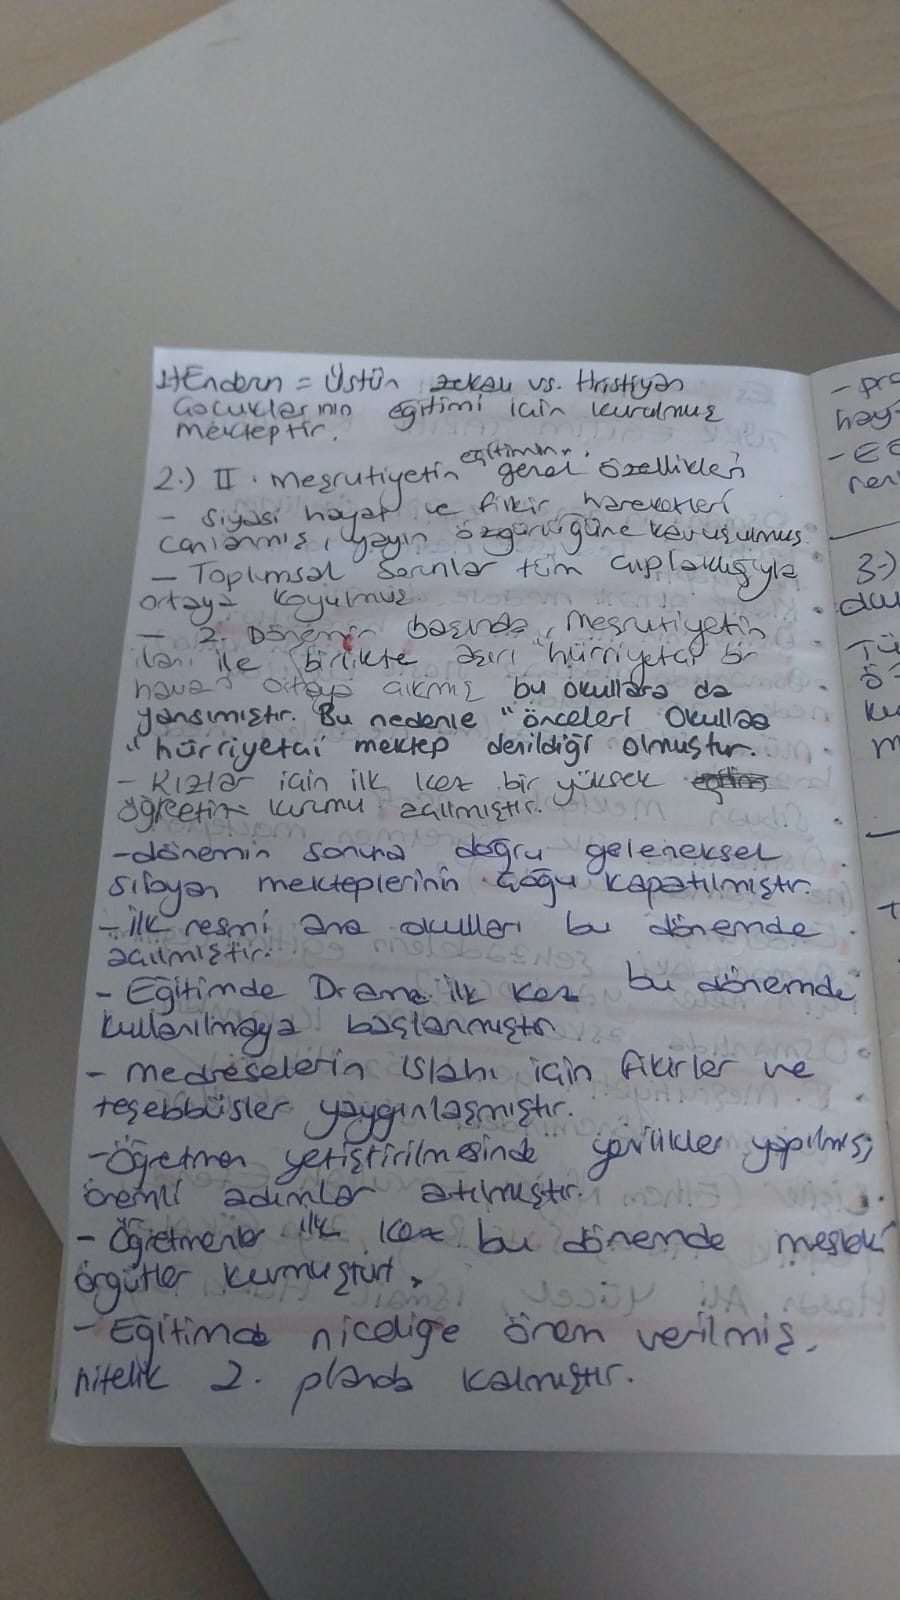 1) Enderun = Üstün zekalı vs. Hristiyan
Çocuklarının eğitimi için kurulmuş
mekteptir.
2.) II. Meşrutiyetin eğitimin genel özellikleri
- Siyasi hayat ve fikir hareketleri
canlanmış, yayın özgürlüğüne kavuşulmuş.
- Toplumsal Sorunlar tüm çıplaklığıyla
ortaya koyulmuş.
- 2. Dönemin başında, Meşrutiyetin
ilanı ile birlikte aşırı "hürriyetçi bir
hava" ortaya çıkmış bu okullara da
yansımıştır. Bu nedenle "önceleri Okullaa
"hürriyetçi mektep denildiği olmuştur.
- Kızlar için ilk kez bir yüksek
öğretim kurumu açılmıştır.
-dönemin sonuna doğru geleneksel
Sıbyan mekteplerinin çoğu kapatılmıştır.
- İlk resmi ana okulları bu dönemde
açılmıştır.
- Eğitimde Drama ilk kez bu dönemde
kullanılmaya başlanmıştır
- medreselerin Islahı için fikirler ve
teşebbüsler yaygınlaşmıştır.
-Öğretmen yetiştirilmesinde yenilikler yapılmış,
önemli adımlar atılmıştır.
- Öğretmenler ilk kez bu dönemde mesleki
örgütler kurmuştur.
- Eğitimde niceliğe önem verilmiş,
nitelik 2. planda kalmıştır.
3-)